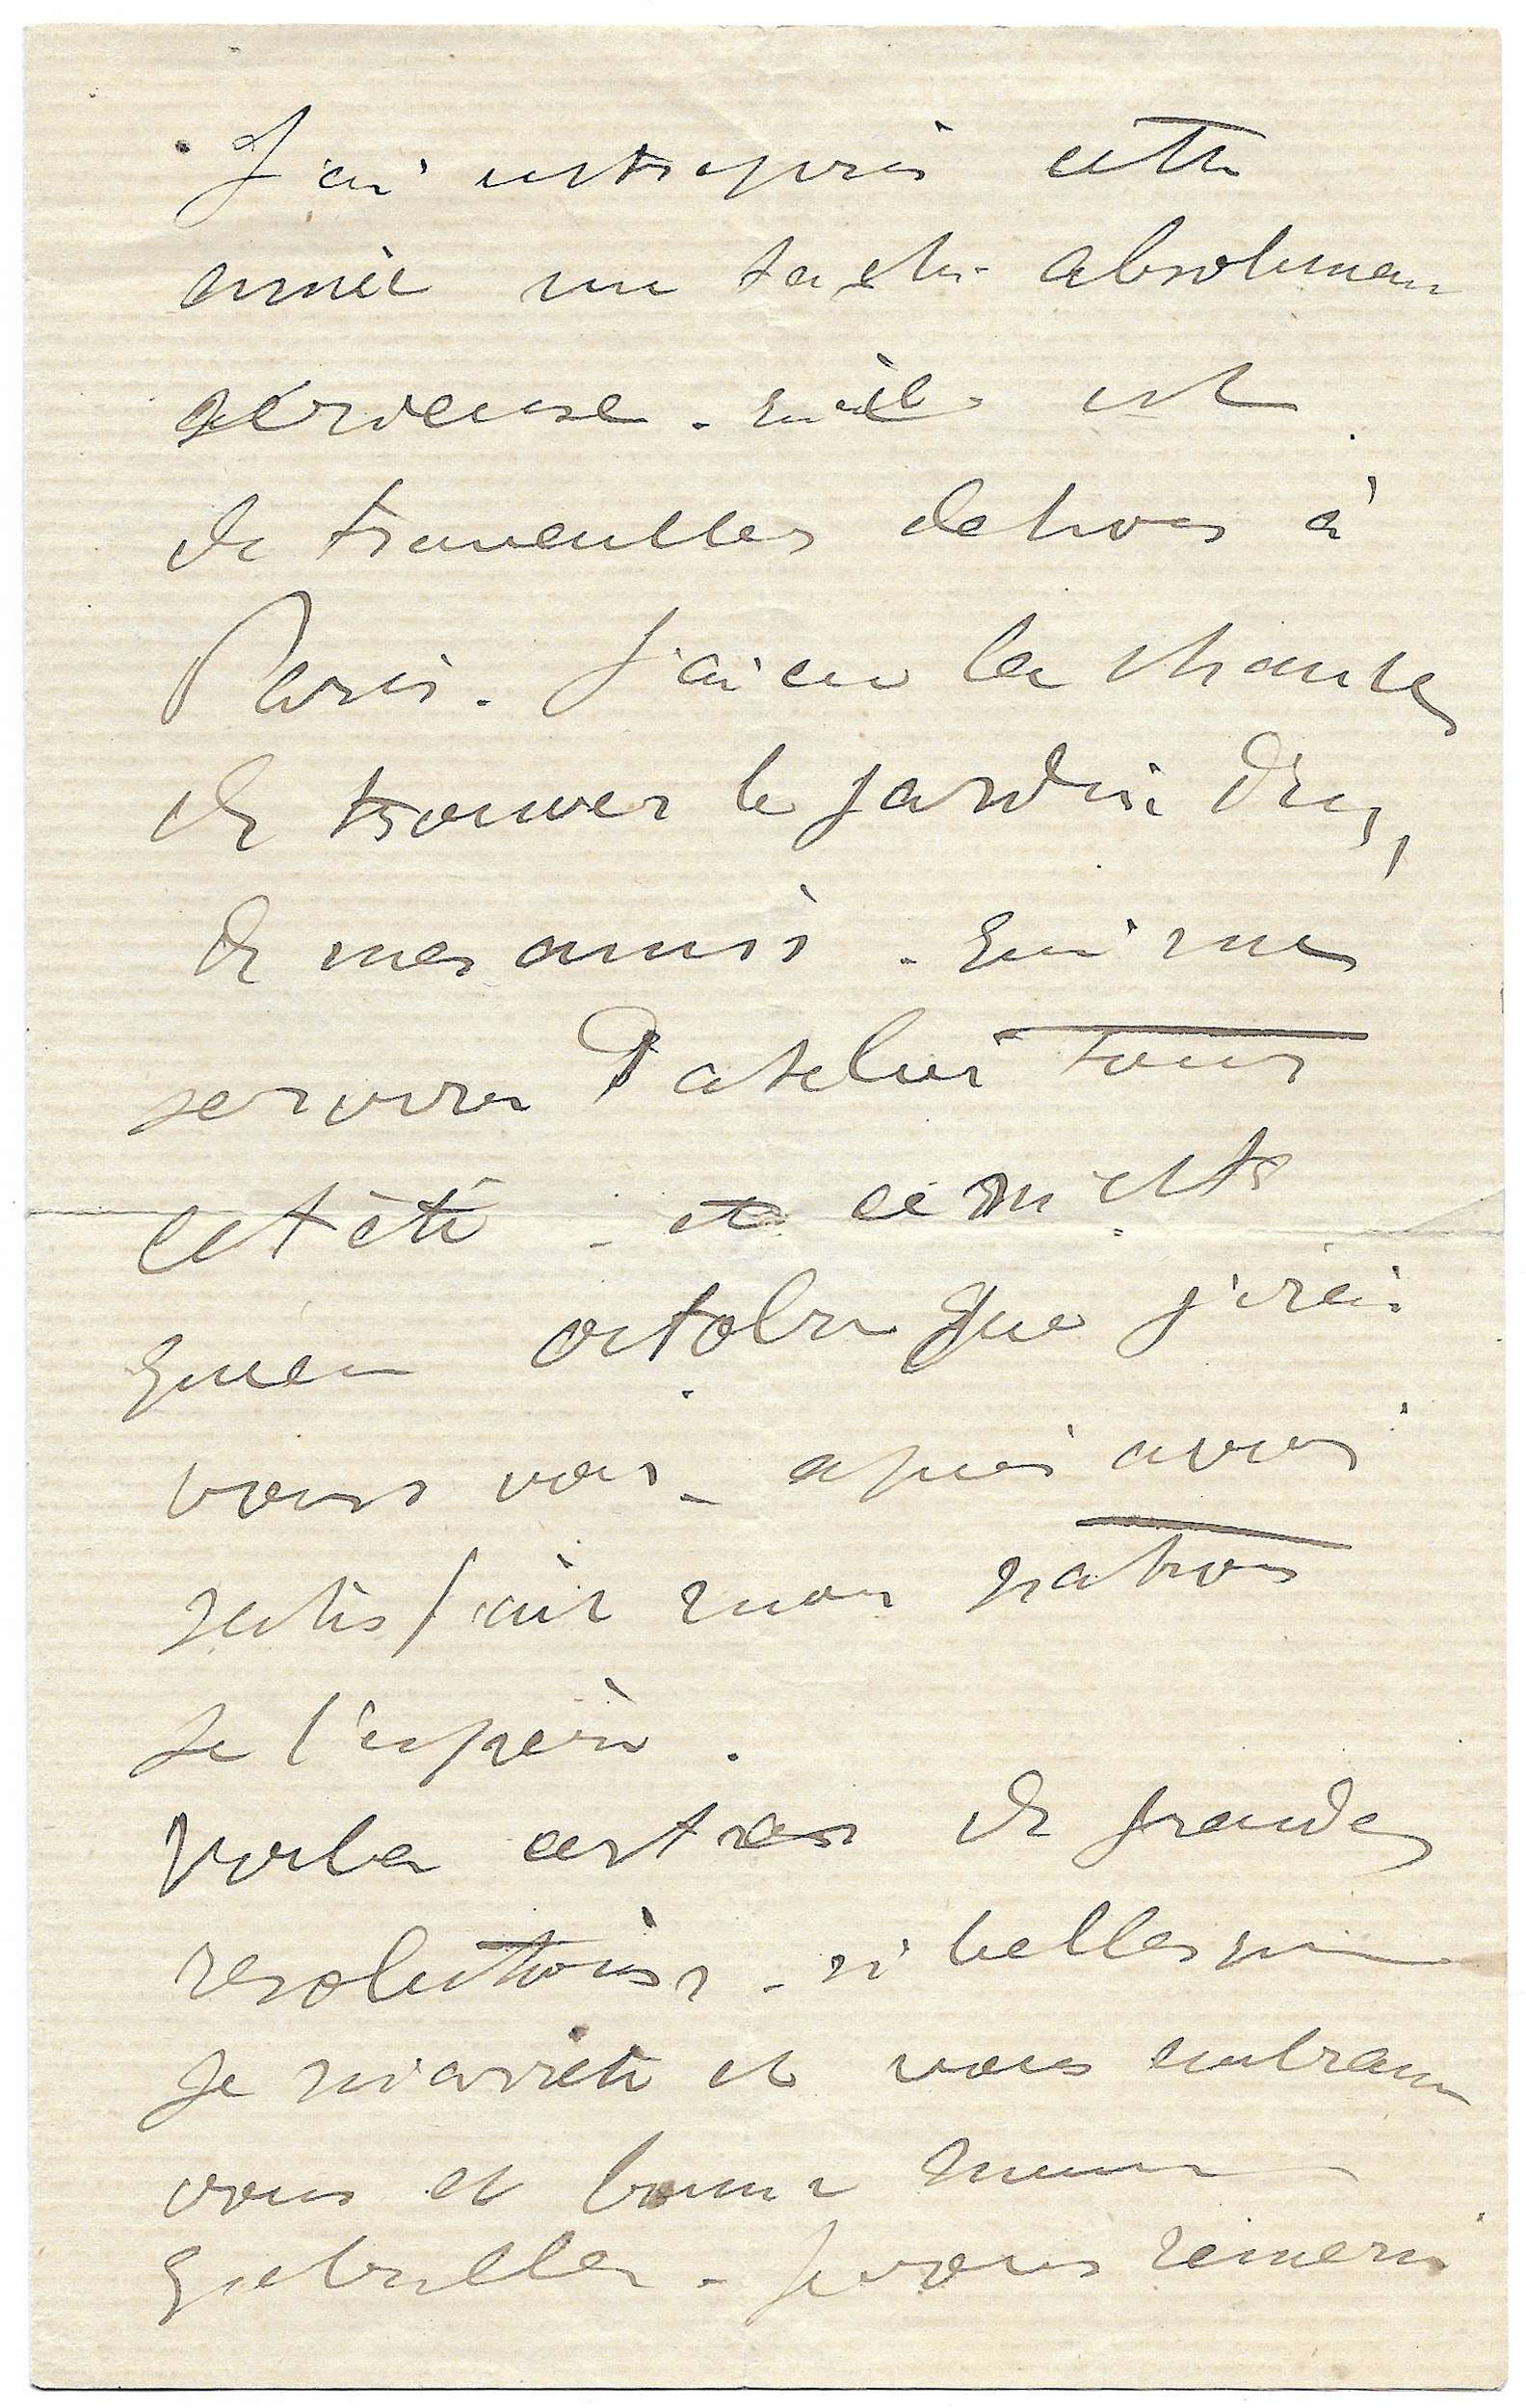 J'ai entrepris cette
année une tache absolument
sérieuse. qui est
de travailler dehors à
Paris. J'ai eu la chance
de trouver le jardin d'un
de mes amis - qui me
servira d'atelier tout
cet été - et ce n'est
qu'en octobre que j'irai
vous voir - après avoir
satisfait mon patron
je l'espère.
Voila de grandes
resolutions - si belles que
Je m'arrête et vous embrasse
vous et bonne maman
Gabrielle - Je vous remercie